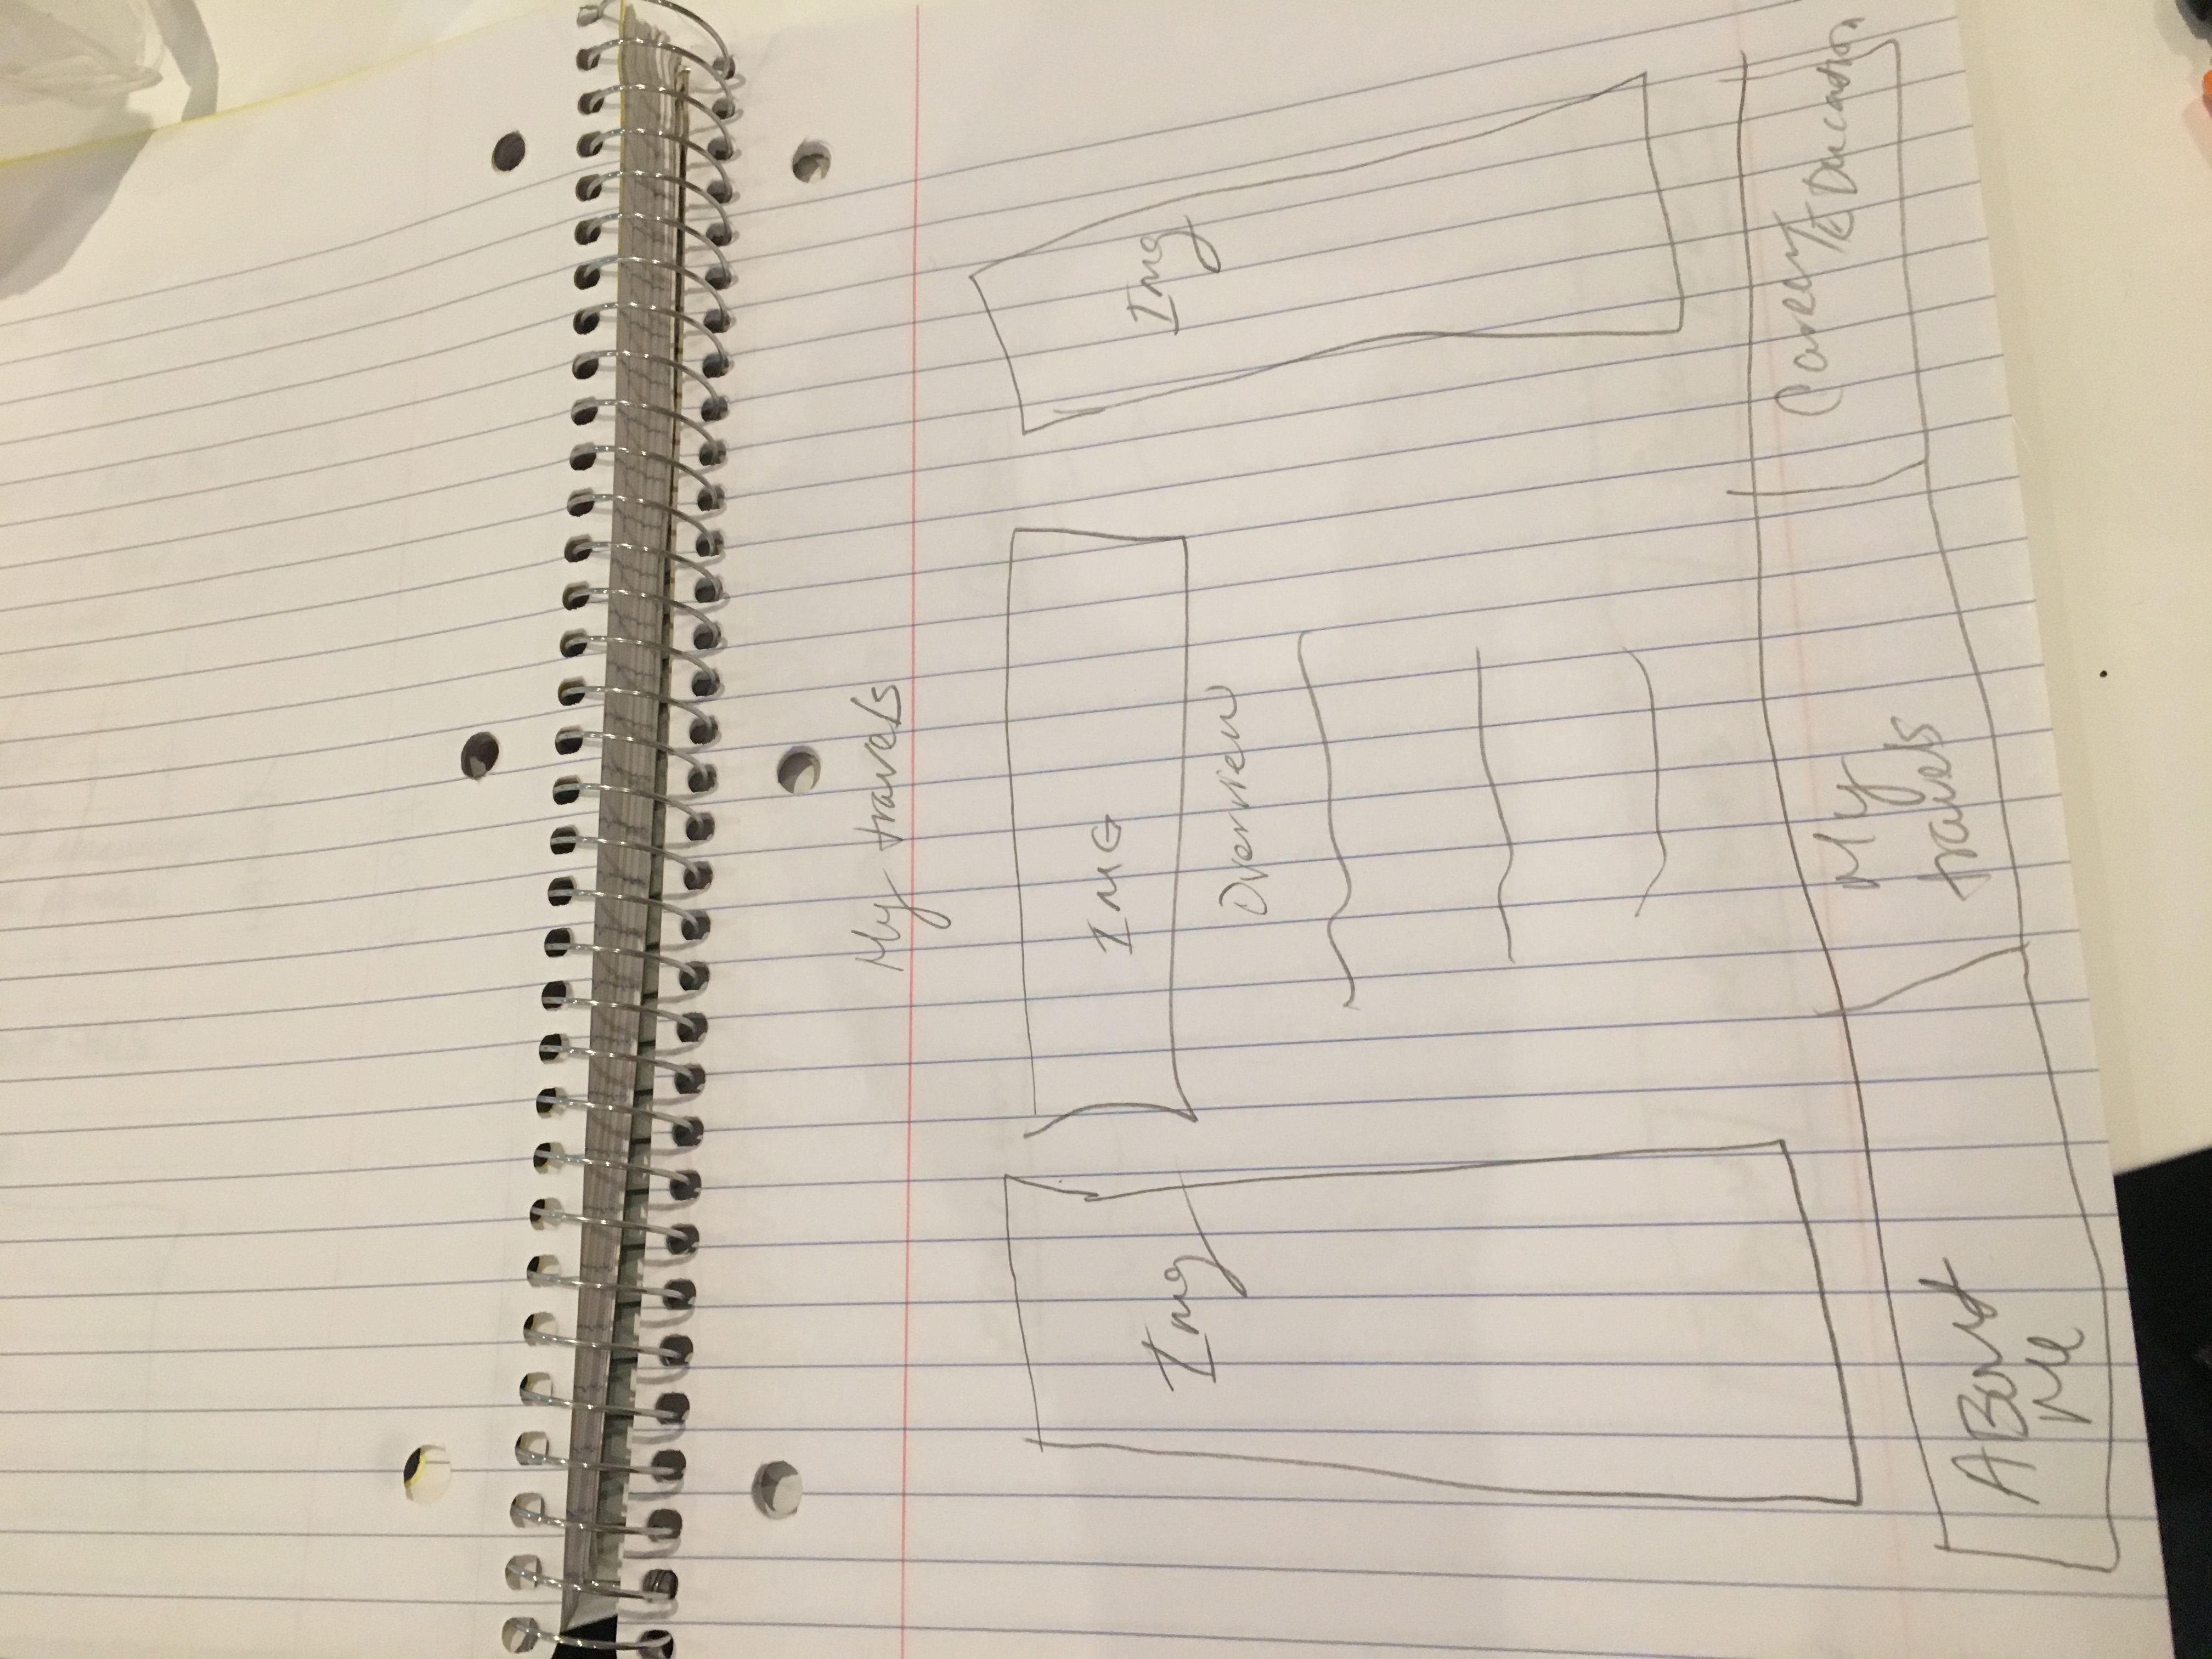 My travels
Img
IMG
Img
Overview
ABout
Me
My
travels
Career/EDucation